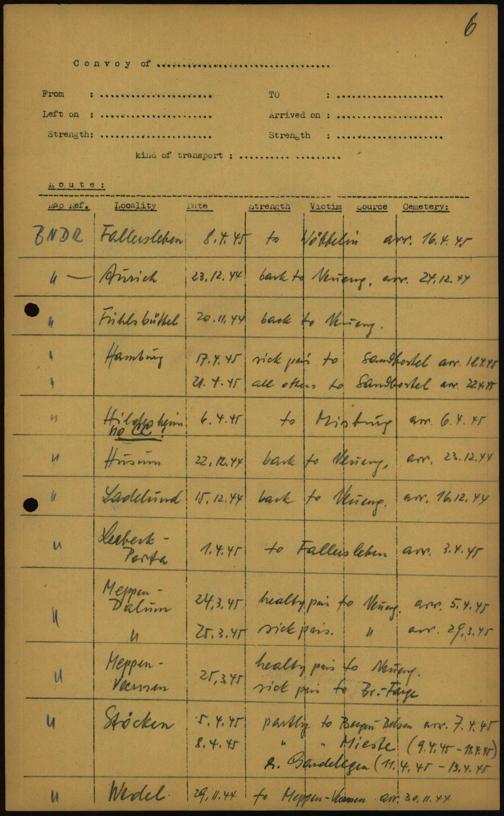 6
Convoy of ..............................
From : .................... TO : ....................
Left on : .................... Arrived on : ....................
Strength: .................... Strength : ....................
kind of transport : .......... ..........
Route:
Map Ref. Locality Date Strength Victim Source Cemetery:
BNDR Fallersleben 8.4.45 to Wöbbelin arr. 16.4.45
" — Aurich 23.12.44 back to Neueng. arr. 24.12.44
" Fuhlsbüttel 20.11.44 back to Neueng.
" Hamburg 17.4.45 sick pris to Sandbostel arr. 18.4.45
" 21.4.45 all others to Sandbostel arr. 22.4.45
" Hildesheim 6.4.45 to Misburg arr. 6.4.45
no CC !
" Husum 22.12.44 back to Neueng. arr. 23.12.44
" Ladelund 15.12.44 back to Neueng. arr. 16.12.44
" Lerbeck-
Porta 1.4.45 to Fallersleben arr. 3.4.45
Meppen-
" Dalum 24.3.45 healthy pris to Neueng. arr. 5.4.45
" 25.3.45 sick pris. " arr. 29.3.45
" Meppen-
Versen 25.3.45 healthy pris to Neueng.
sick pris to Br.-Farge
" Stöcken 5.4.45 partly to Bergen Belsen arr. 7.4.45
8.4.45 " " Mieste (9.4.45 - 11.4.45)
& Gardelegen (11.4.45 - 13.4.45)
" Wedel 29.11.44 to Meppen-Versen arr. 30.11.44